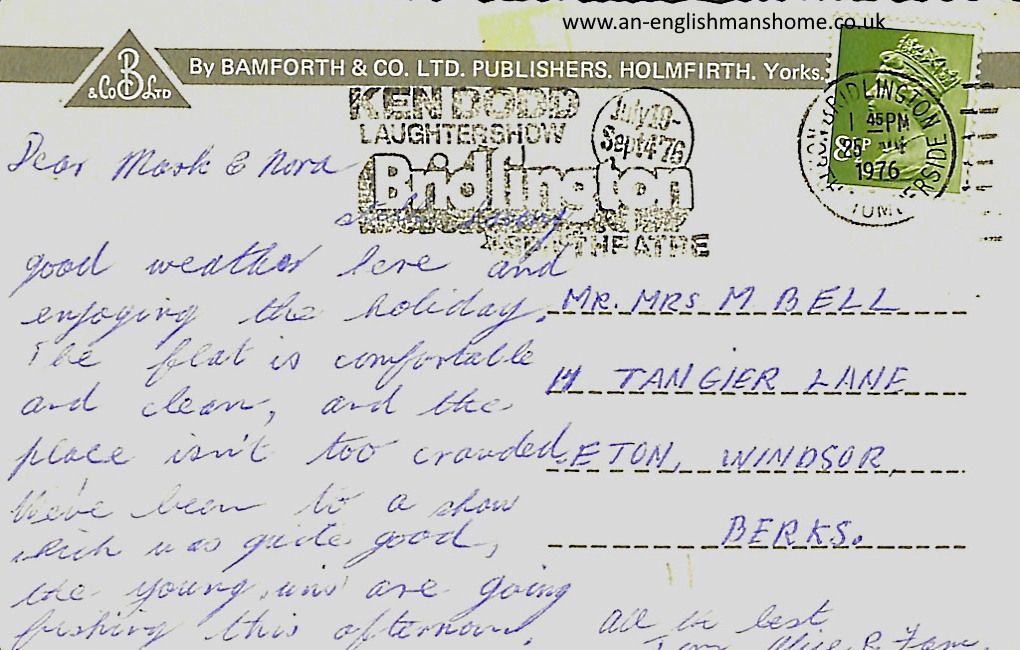 www.an-englishmanshome.co.uk
B & Co LTD By BAMFORTH & CO. LTD. PUBLISHERS. HOLMFIRTH. Yorks.
KEN DODD
LAUGHTER SHOW
July 10-
Sept 4 '76
Bridlington
THEATRE
BRIDLINGTON
1 45PM
25
1976
8½P
Dear Mark & Nora
having
good weather here and
enjoying the holiday.
The flat is comfortable
and clean, and the
place isn't too crowded.
We've been to a show
which was quite good,
the young 'uns are going
fishing this afternoon.
All the best
Fam.
MR. MRS M BELL
TANGIER LANE
ETON, WINDSOR,
BERKS.